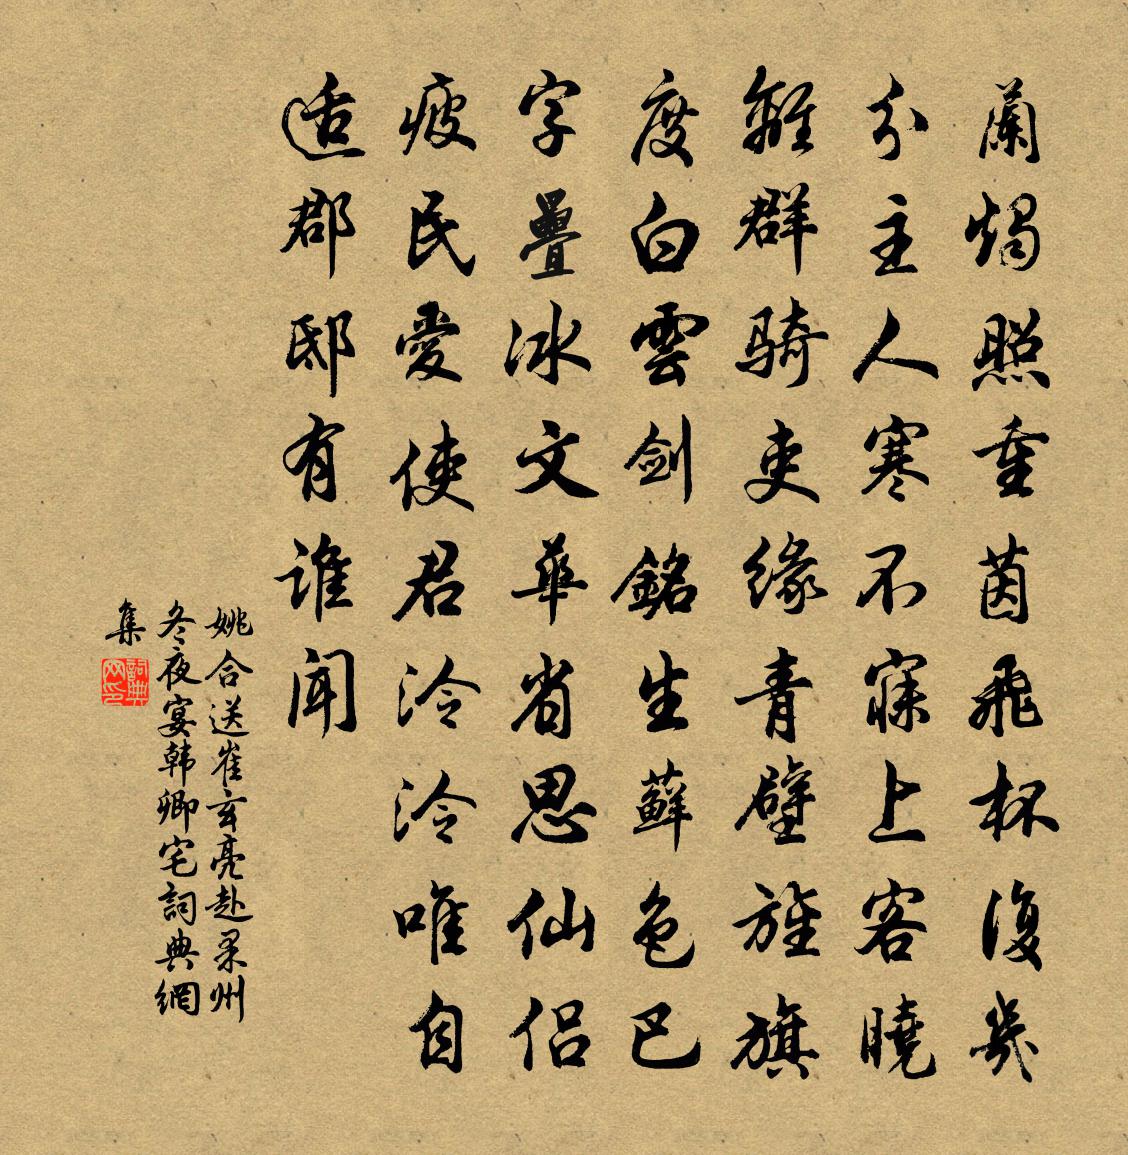 蘭燭照重茵飛杯復幾
分主人寒不寐上客曉
離群騎吏緣青壁旌旗
度白雲劍銘生蘚色巴
字疊冰文華省思仙侶
疲民愛使君泠泠唯自
适郡邸有誰聞
姚合送崔玄亮赴果州
冬夜宴韩卿宅詞典網
集
詞典網印